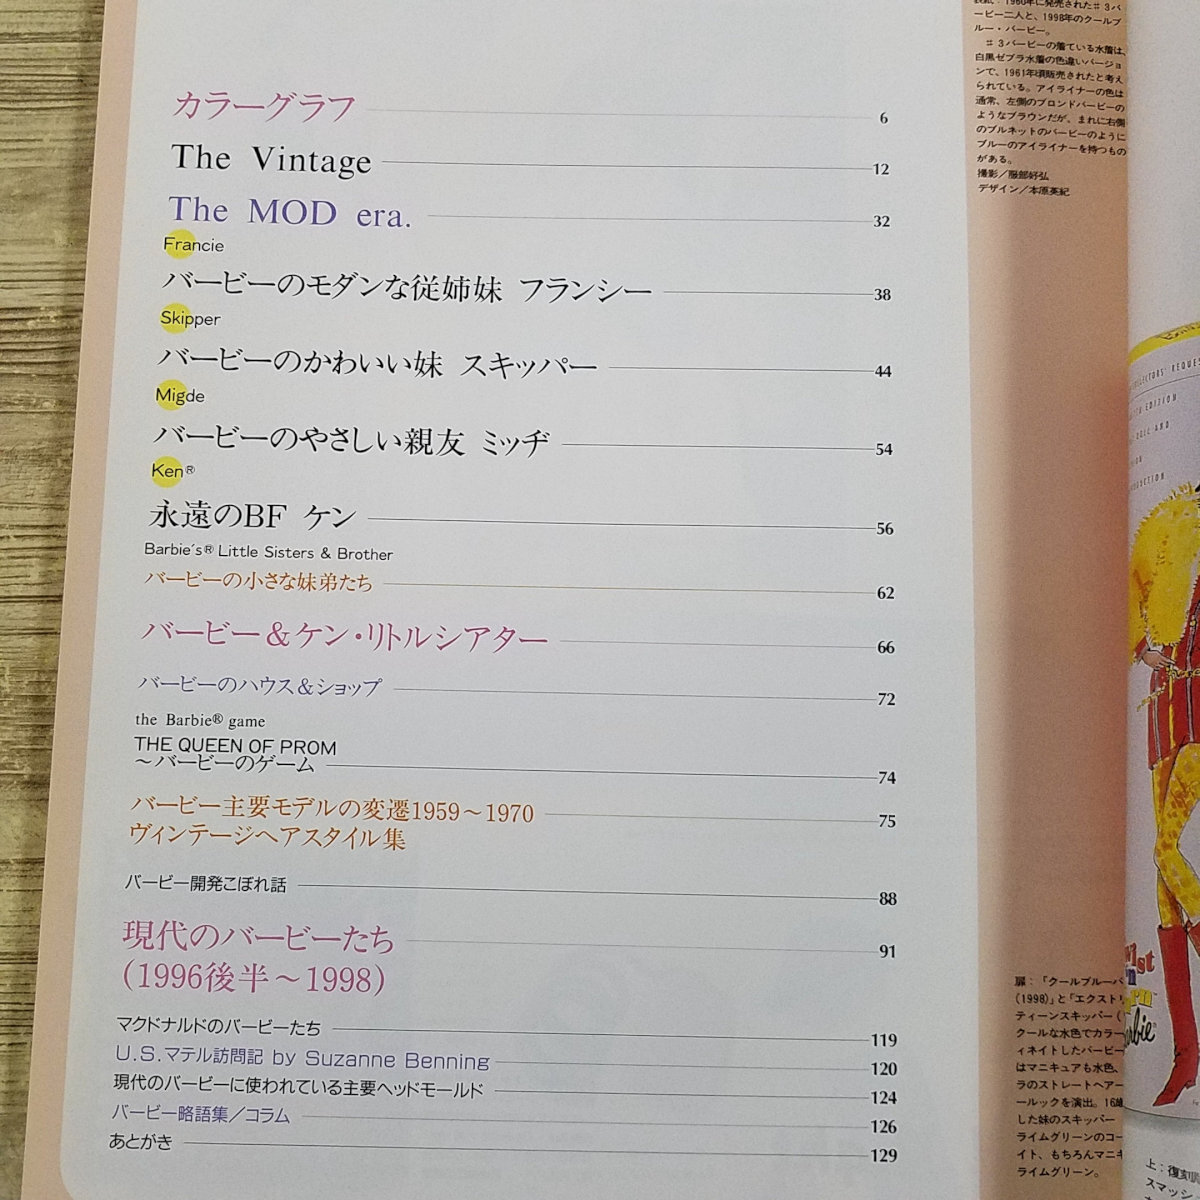 カラーグラフ 6
The Vintage 12
The MOD era. 32
Francie
バービーのモダンな従姉妹 フランシー 38
Skipper
バービーのかわいい妹 スキッパー 44
Migde
バービーのやさしい親友 ミッヂ 54
Ken®
永遠のBF ケン 56
Barbie's® Little Sisters & Brother
バービーの小さな妹弟たち 62
バービー＆ケン・リトルシアター 66
バービーのハウス＆ショップ 72
the Barbie® game
THE QUEEN OF PROM
～バービーのゲーム 74
バービー主要モデルの変遷1959～1970 75
ヴィンテージヘアスタイル集
バービー開発こぼれ話 88
現代のバービーたち 91
(1996後半～1998)
マクドナルドのバービーたち 119
U.S.マテル訪問記 by Suzanne Benning 120
現代のバービーに使われている主要ヘッドモールド 124
バービー略語集／コラム 126
あとがき 129
表紙：1960年に発売された＃3バ
ービー二人と、1998年のクールブ
ルー・バービー。
＃3バービーの着ている水着は、
白黒ゼブラ水着の色違いバージョ
ンで、1961年頃販売されたと考え
られている。アイライナーの色は
通常、左側のブロンドバービーの
ようなブラウンだが、まれに右側
のブルネットのバービーのように
ブルーのアイライナーを持つもの
がある。
撮影／服部好弘
デザイン／本原英紀
扉：「クールブルーバ
(1998)」と「エクスト
ティーンスキッパー(
クールな水色でカラー
ィネイトしたバービー
はマニキュアも水色、
ラのストレートヘアー
ールックを演出。16歳
した妹のスキッパー
ライムグリーンのコー
イト、もちろんマニキ
ライムグリーン。
COLLECTORS' REQUES
EDITION
DOLL AND
上：復刻
スマッシ